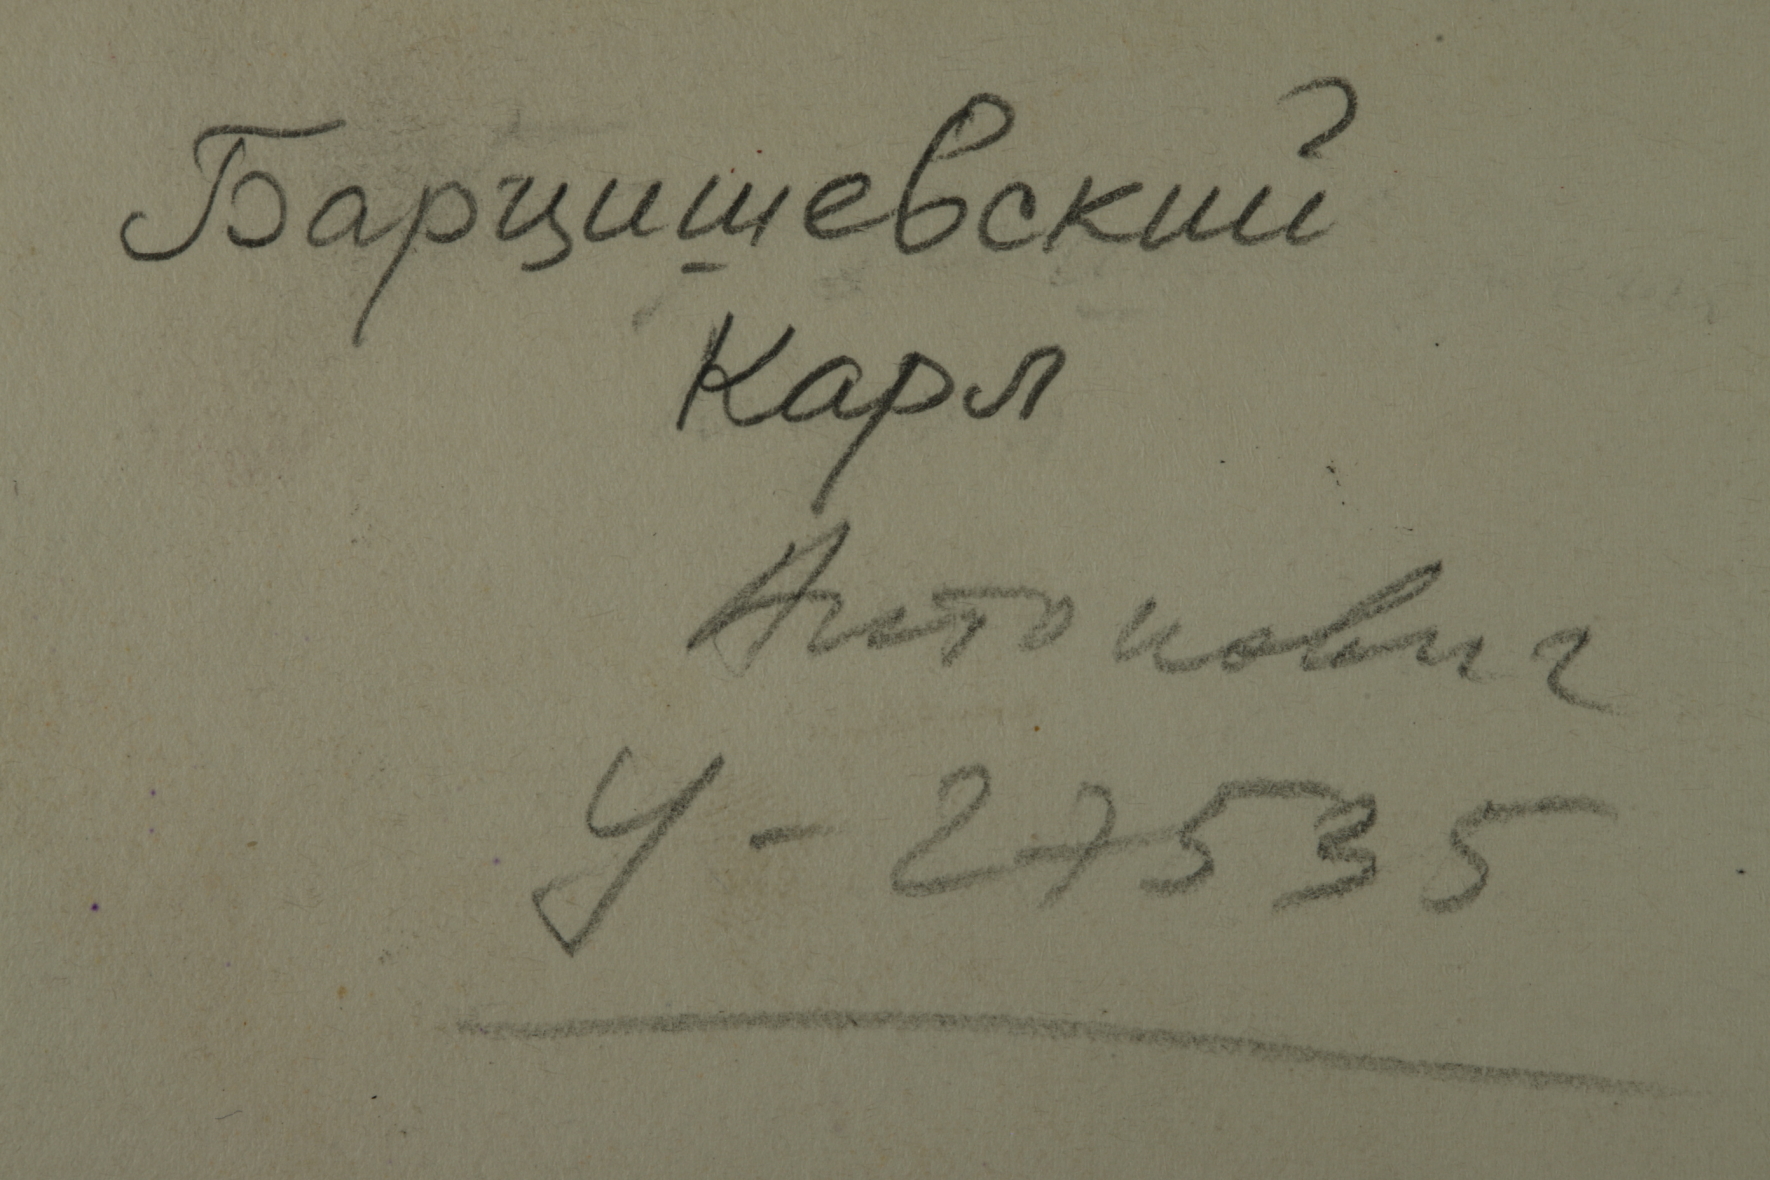 Барцишевский
Карл
Антонович
У-27535